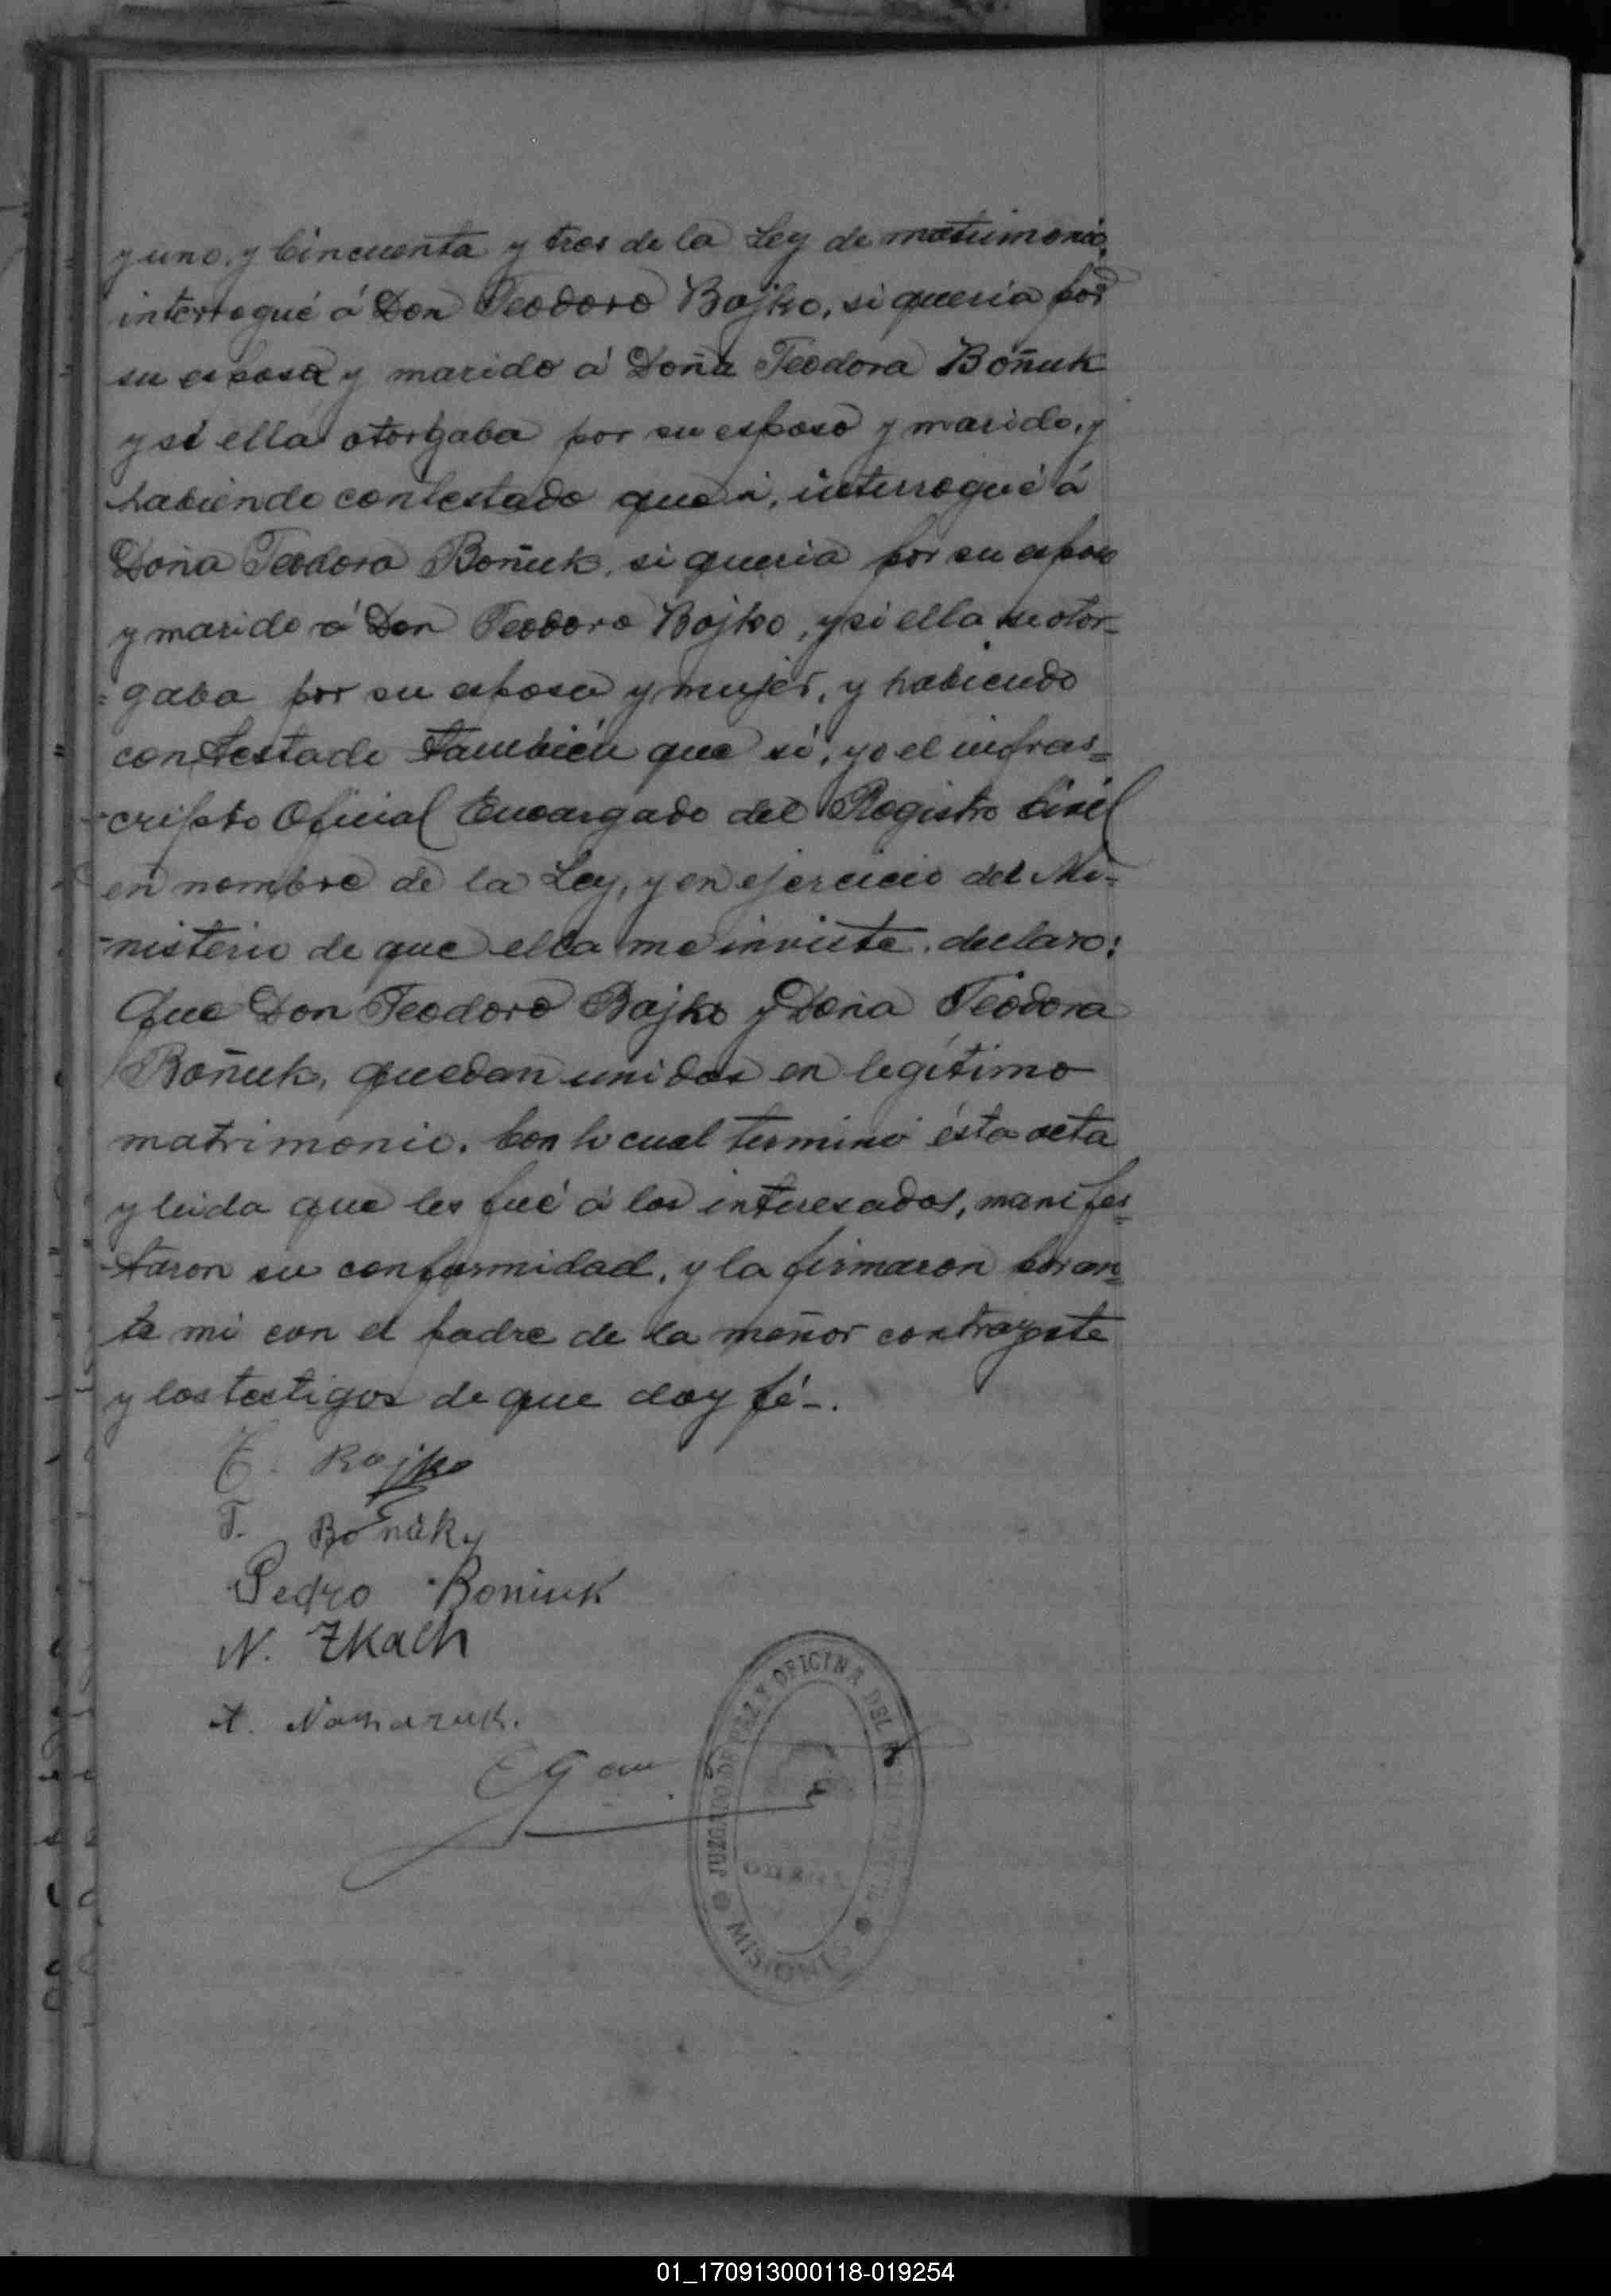 y uno, y Cincuenta y tres de la Ley de matrimonio,
interrogué á Don Teodoro Bojko, si queria por
su esposa y marido á Doña Teodora Boñuk
y si ella otorgaba por su esposo y marido, y
habiendo contestado que si, interrogué á
Doña Teodora Boñuk, si queria por su esposo
y marido á Don Teodoro Bojko, y si ella se otor-
=gaba por su esposa y mujer, y habiendo
contestado también que sí, yo el infras=
-cripto Oficial Encargado del Registro Civil
en nombre de la Ley, y en ejercicio del Mi-
-nisterio de que ella me inviste, declaro:
Que Don Teodoro Bojko y Doña Teodora
Boñuk, quedan unidos en legítimo
matrimonio. Con lo cual terminó ésta acta
y leida que les fué á los interesados, manifes=
-taron su conformidad, y la firmaron por an=
te mi con el padre de la meñor contrayente
y los testigos de que doy fé-.
T. Bojko
T. Boñuk
Pedro Boniuk
N. Tkach
A.
JUZGADO DE PAZ Y OFICINA DEL
MISIONES
01_170913000118-019254